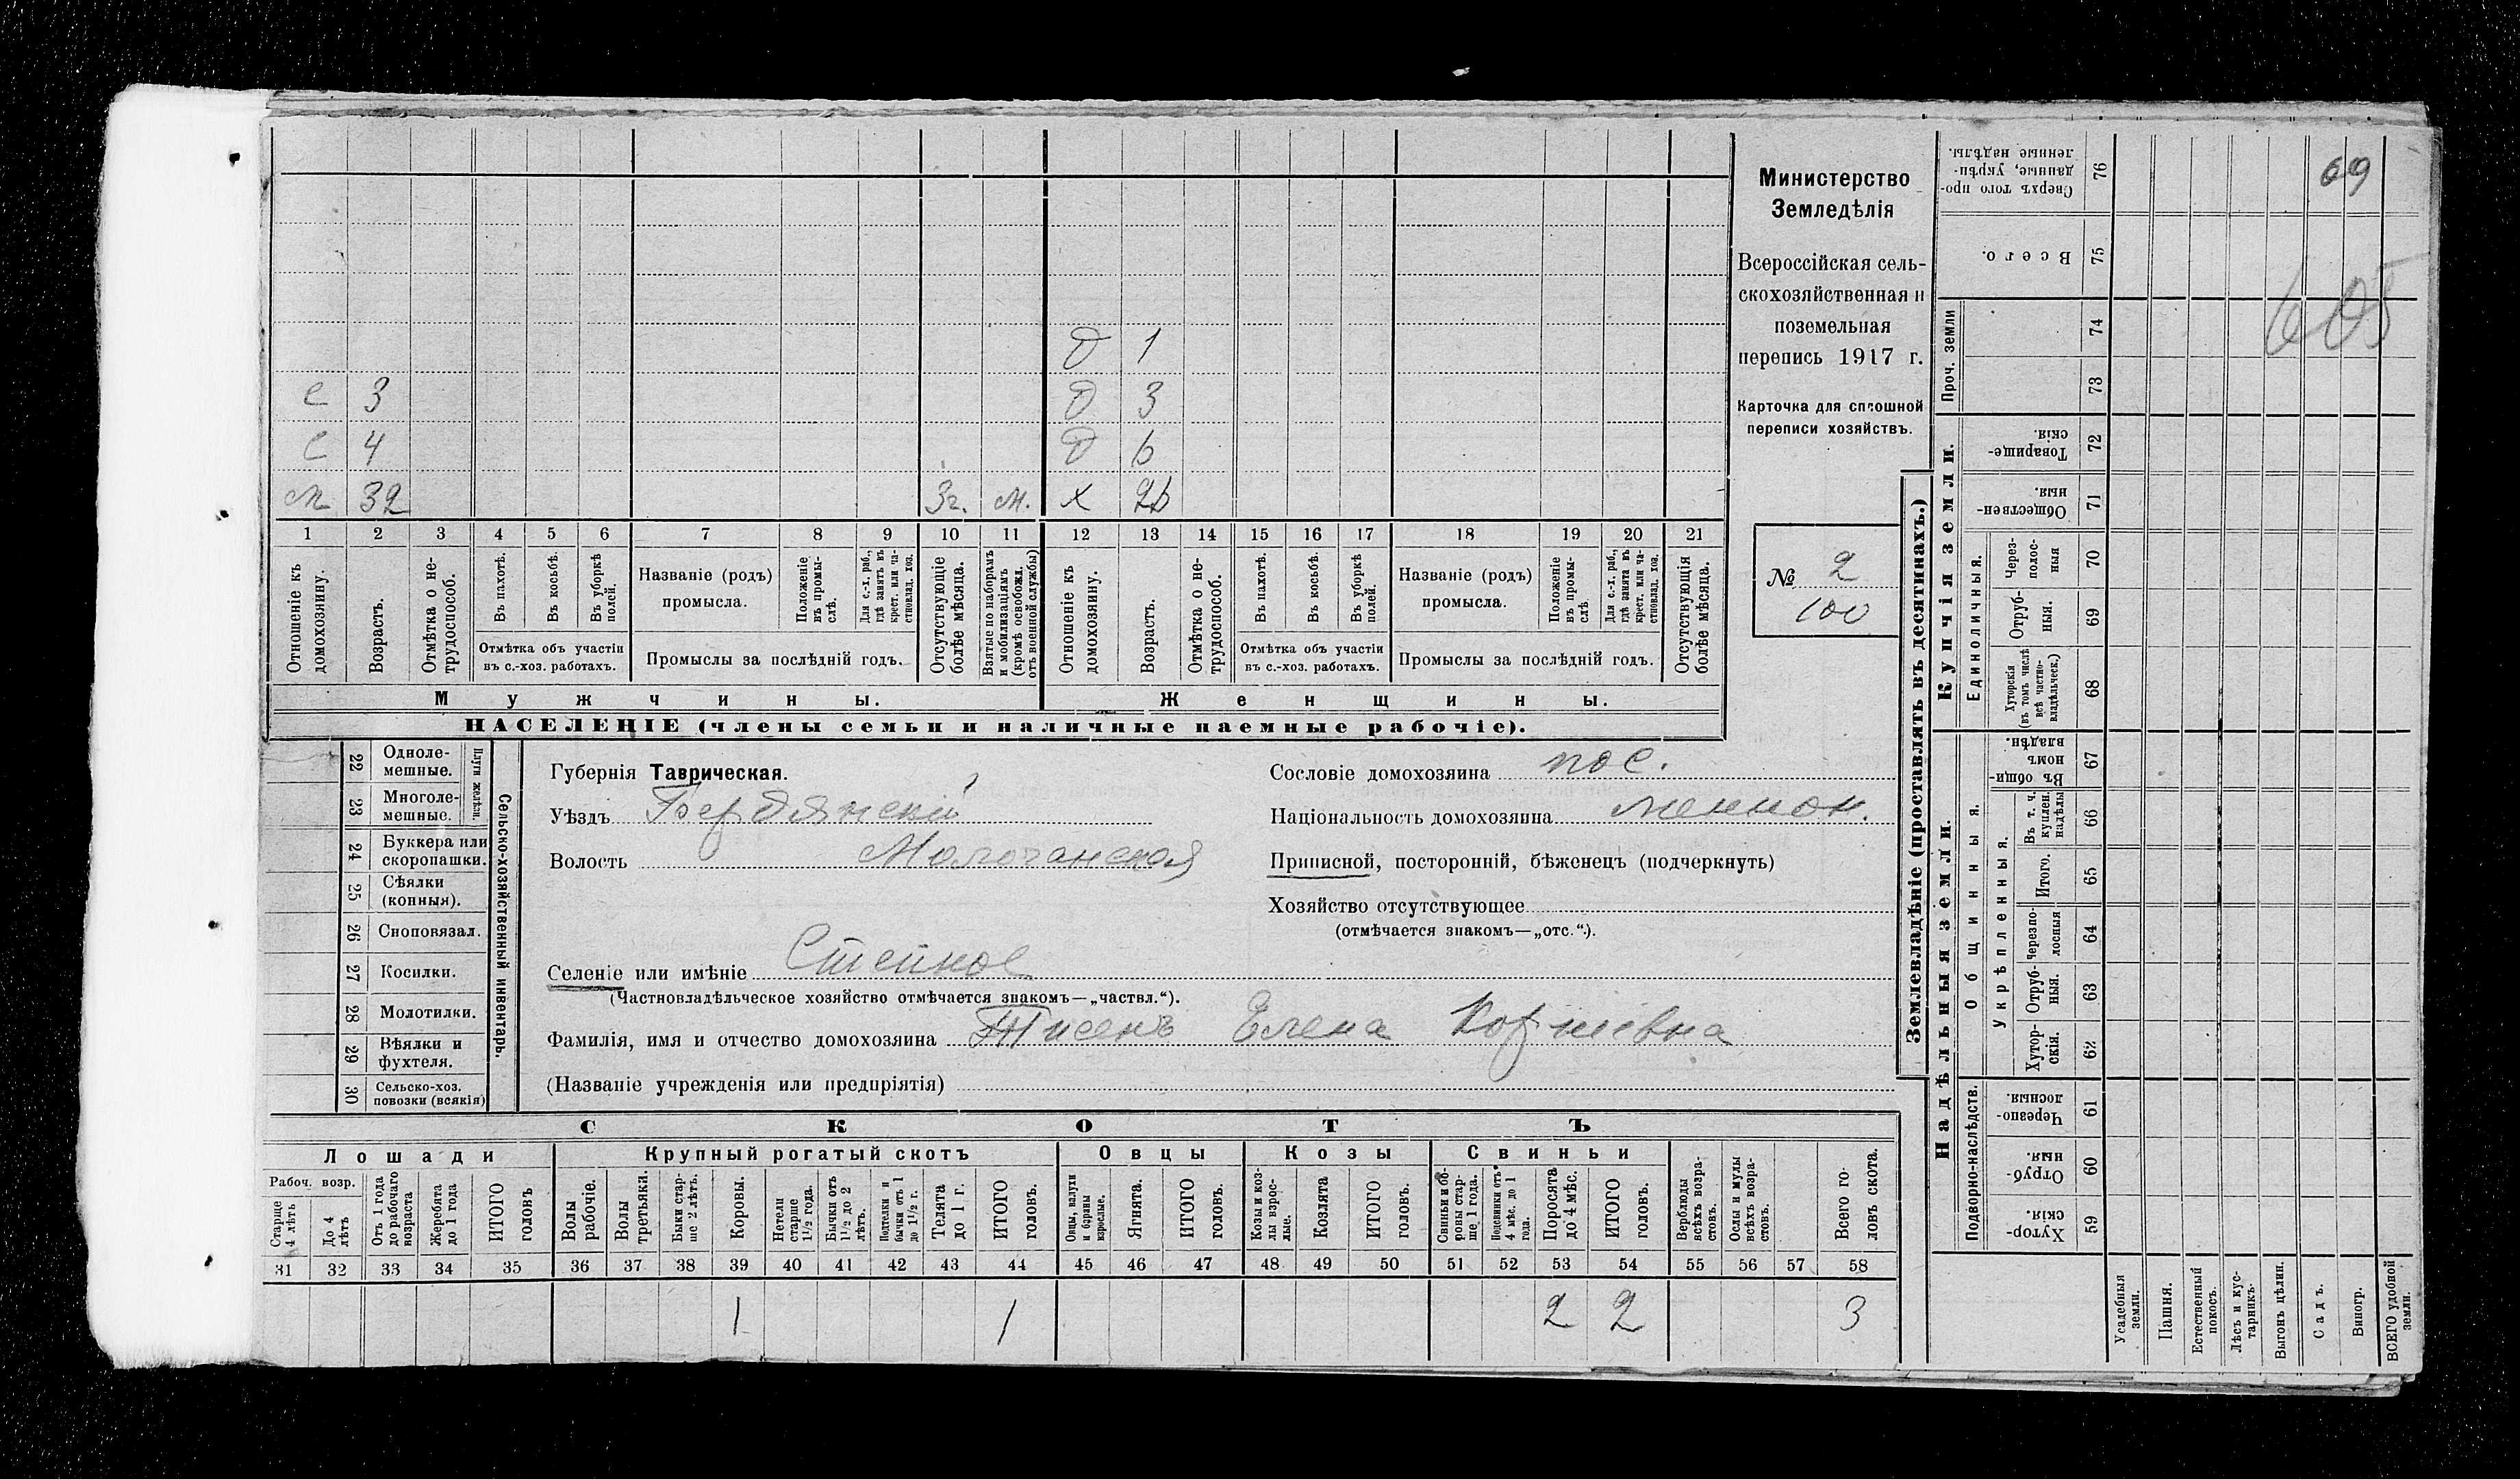 69
605
Министерство
Земледѣлія
Всероссійская сель-
скохозяйственная и
поземельная
перепись 1917 г.
Карточка для сплошной
переписи хозяйствъ.
№ 2
100
д 1
с 3 д 3
с 4 д 6
м 32 3г. м. х 26
1 2 3 4 5 6 7 8 9 10 11 12 13 14 15 16 17 18 19 20 21
Отношеніе къ домохозяину.
Возрастъ.
Отмѣтка о не-трудоспособ.
Въ пахотѣ.
Въ косьбѣ.
Въ уборкѣ полей.
Отмѣтка объ участіи
въ с.-хоз. работахъ.
Названіе (родъ)
промысла.
Положеніе въ промы-слѣ.
Для с.-х. раб., гдѣ занятъ въ крест. или ча-стновлад. хоз.
Промыслы за послѣдній годъ.
Отсутствующіе болѣе мѣсяца.
Взятые по наборамъ и мобилизаціямъ (кромѣ освобожд. отъ военной службы)
Отношеніе къ домохозяину.
Возрастъ.
Отмѣтка о не-трудоспособ.
Въ пахотѣ.
Въ косьбѣ.
Въ уборкѣ полей.
Отмѣтка объ участіи
въ с.-хоз. работахъ.
Названіе (родъ)
промысла.
Положеніе въ промы-слѣ
Для с.-х. раб., гдѣ занята въ крест. или ча-стновлад. хоз.
Промыслы за послѣдній годъ.
Отсутствующія болѣе мѣсяца.
Мужчины. Женщины.
НАСЕЛЕНІЕ (члены семьи и наличные наемные рабочіе).
Сельско-хозяйственный инвентарь.
Плуги желѣзн.
22 Одноле-мешные.
23 Многоле-мешные.
24 Буккера или скоропашки.
25 Сѣялки (конныя).
26 Сноповязал.
27 Косилки.
28 Молотилки.
29 Вѣялки и фухтеля.
30 Сельско-хоз. повозки (всякія)
Губернія Таврическая.
Уѣздъ Бердянскій
Волость Молочанская
Селеніе или имѣніе Стейное
(Частновладѣльческое хозяйство отмѣчается знакомъ—„частвл.“).
Фамилія, имя и отчество домохозяина Тисенъ Елена Корніевна
(Названіе учрежденія или предпріятія)
Сословіе домохозяина пос.
Національность домохозяина меннон.
Приписной, посторонній, бѣженецъ (подчеркнуть)
Хозяйство отсутствующее
(отмѣчается знакомъ—„отс.“).
СКОТЪ
Лошади Крупный рогатый скотъ Овцы Козы Свиньи
Рабоч. возр.
Старше 4 лѣтъ
До 4 лѣтъ
Отъ 1 года до рабочаго возраста
Жеребята до 1 года
ИТОГО головъ
Волы рабочіе.
Волы третьяки.
Быки стар-ше 2 лѣтъ.
Коровы.
Нетели старше 1½ года.
Бычки отъ 1½ до 2 лѣтъ.
Подтелки и бычки отъ 1 до 1½ г.
Телята до 1 г.
ИТОГО головъ.
Овцы, валухи и бараны взрослые.
Ягнята.
ИТОГО головъ.
Козы и коз-лы взрос-лые.
Козлята
ИТОГО головъ.
Свиньи и бо-ровы стар-ше 1 года.
Подсвинки отъ 4 мѣс. до 1 года.
Поросята до 4 мѣс.
ИТОГО головъ.
Верблюды всѣхъ возра-стовъ.
Ослы и мулы всѣхъ возра-стовъ.
Всего го-ловъ скота.
31 32 33 34 35 36 37 38 39 40 41 42 43 44 45 46 47 48 49 50 51 52 53 54 55 56 57 58
1 1 2 2 3
Землевладѣніе (проставлять въ десятинахъ.)
Купчія земли.
Надѣльныя земли.
Сверхъ того про-данные, укрѣп-ленные надѣлы. 76
Всего. 75
Проч. земли 74
73
Товарище-скія. 72
Обществен-ныя. 71
Единоличныя.
Через-полос-ныя 70
Отруб-ныя. 69
Хуторскія (въ томъ числѣ всѣ частно-владѣльческ.) 68
Общинныя.
Въ общи-номъ владѣн. 67
Укрѣпленныя.
Въ т. ч. куплен. надѣлы 66
Итого. 65
Черезпо-лосныя 64
Отруб-ныя. 63
Хутор-скія. 62
Подворно-наслѣдств.
Черезпо-лосныя. 61
Отруб-ныя. 60
Хутор-скія. 59
Усадебныя земли.
Пашня.
Естественный покосъ.
Лѣсъ и кус-тарникъ.
Выгонъ цѣлин.
Садъ.
Виногр.
ВСЕГО удобной земли.